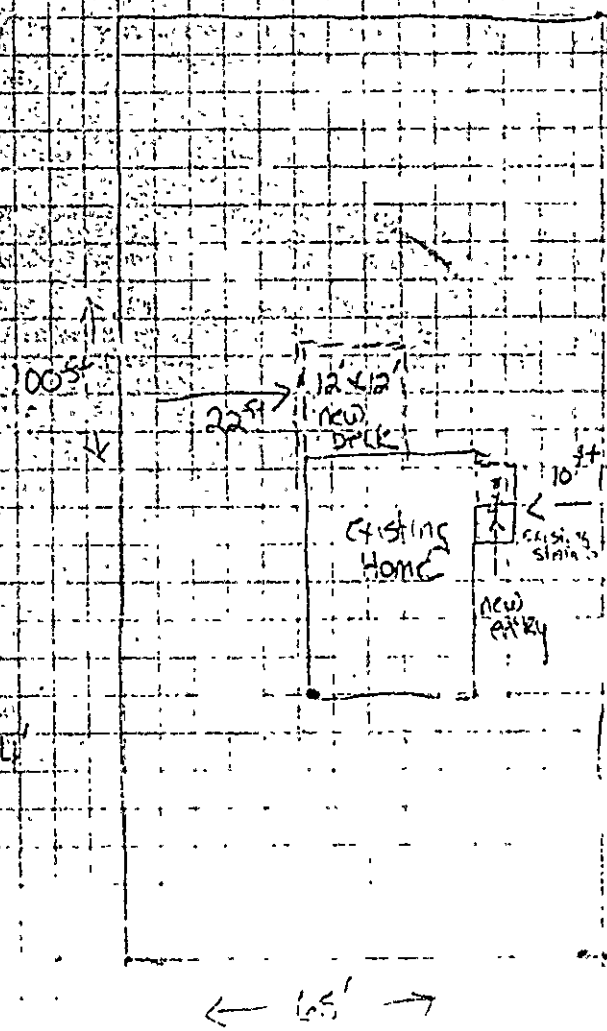 100ft
22ft
12'x12'
new
Deck
10ft
existing
Home
existing
stairs
new
entry
4'